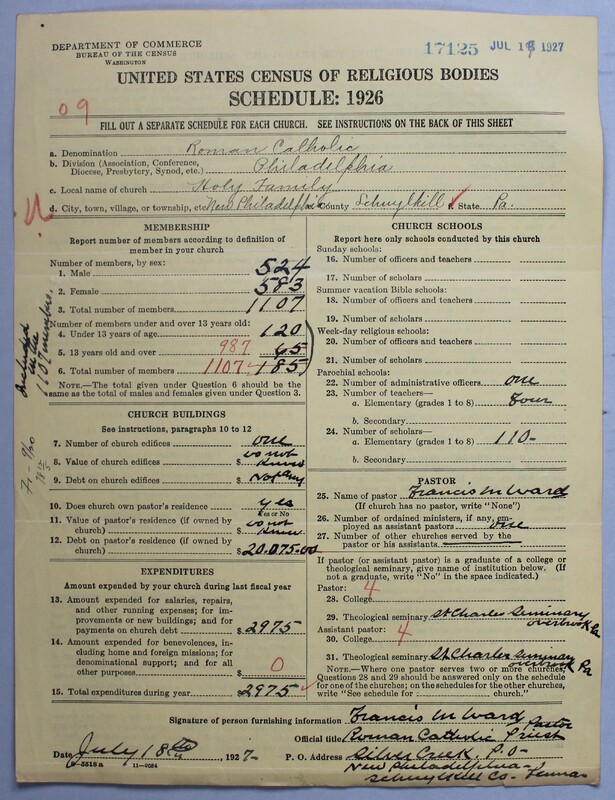 DEPARTMENT OF COMMERCE
BUREAU OF THE CENSUS
WASHINGTON
17125 JUL 1927
UNITED STATES CENSUS OF RELIGIOUS BODIES
SCHEDULE: 1926
09
FILL OUT A SEPARATE SCHEDULE FOR EACH CHURCH. SEE INSTRUCTIONS ON THE BACK OF THIS SHEET
a. Denomination Roman Catholic
b. Division (Association, Conference, Diocese, Presbytery, Synod, etc.) Philadelphia
c. Local name of church Holy Family
d. City, town, village, or township, etc New Philadelphia e. County Schuylkill f. State Pa.
MEMBERSHIP
Report number of members according to definition of
member in your church
Number of members, by sex:
1. Male 524
2. Female 583
3. Total number of members 1107
Number of members under and over 13 years old:
4. Under 13 years of age 120
5. 13 years old and over 987 65
6. Total number of members 1107 185
included in the 1107 members.
NOTE.—The total given under Question 6 should be the
same as the total of males and females given under Question 3.
CHURCH BUILDINGS
See instructions, paragraphs 10 to 12
7. Number of church edifices one
8. Value of church edifices $ do not know
9. Debt on church edifices $ Not any
10. Does church own pastor's residence? yes
Yes or No
11. Value of pastor's residence (if owned by
church) $ do not know
12. Debt on pastor's residence (if owned by
church) $ 20.075.00
EXPENDITURES
Amount expended by your church during last fiscal year
13. Amount expended for salaries, repairs,
and other running expenses; for im-
provements or new buildings; and for
payments on church debt $ 2975
14. Amount expended for benevolences, in-
cluding home and foreign missions; for
denominational support; and for all
other purposes $ 0
15. Total expenditures during year $ 2975
CHURCH SCHOOLS
Report here only schools conducted by this church
Sunday schools:
16. Number of officers and teachers
17. Number of scholars
Summer vacation Bible schools:
18. Number of officers and teachers
19. Number of scholars
Week-day religious schools:
20. Number of officers and teachers
21. Number of scholars
Parochial schools:
22. Number of administrative officers one
23. Number of teachers—
a. Elementary (grades 1 to 8) Four
b. Secondary
24. Number of scholars—
a. Elementary (grades 1 to 8) 110-
b. Secondary
PASTOR
25. Name of pastor Francis M Ward
(If church has no pastor, write "None")
26. Number of ordained ministers, if any, em-
ployed as assistant pastors one
27. Number of other churches served by the
pastor or his assistants
If pastor (or assistant pastor) is a graduate of a college or
theological seminary, give name of institution below. (If
not a graduate, write "No" in the space indicated.)
Pastor:
28. College 4
29. Theological seminary St Charles Seminary
overbrook Pa
Assistant pastor:
30. College 4
31. Theological seminary St Charles Seminary
overbrook Pa
NOTE.—Where one pastor serves two or more churches,
Questions 28 and 29 should be answered only on the schedule
for one of the churches; on the schedules for the other churches,
write "See schedule for church."
Signature of person furnishing information Francis M Ward Pastor
Official title Roman Catholic Priest
Date July 18th, 1927- P. O. Address Silver Creek P.O-
New Philadelphia-
Schuylkill Co- Penna
8-5518a 11-9084